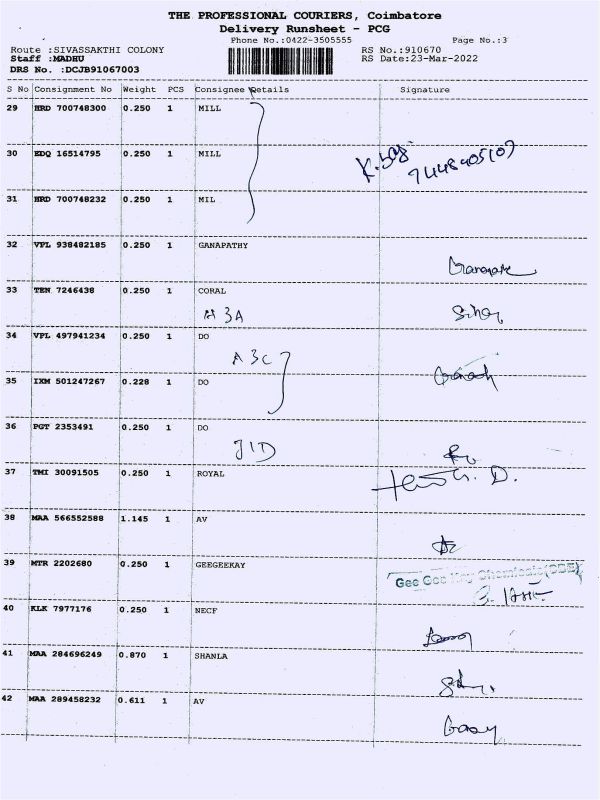 THE PROFESSIONAL COURIERS, Coimbatore
Delivery Runsheet - PCG
Phone No.:0422-3505555 Page No.:3
Route :SIVASSAKTHI COLONY RS No.:910670
Staff :MADHU RS Date:23-Mar-2022
DRS No. :DCJB91067003
S No Consignment No Weight PCS Consignee Details Signature
29 HRD 700748300 0.250 1 MILL
30 EDQ 16514795 0.250 1 MILL
31 HRD 700748232 0.250 1 MIL
32 VPL 938482185 0.250 1 GANAPATHY
33 TEN 7246438 0.250 1 CORAL
A 3A
34 VPL 497941234 0.250 1 DO
A 3C
35 IXM 501247267 0.228 1 DO
36 PGT 2353491 0.250 1 DO
J1D
37 TMI 30091505 0.250 1 ROYAL
38 MAA 566552588 1.145 1 AV
39 MTR 2202680 0.250 1 GEEGEEKAY
Gee Gee Kay Chemicals (CBE)
40 KLK 7977176 0.250 1 NECF
41 MAA 284696249 0.870 1 SHANLA
42 MAA 289458232 0.611 1 AV